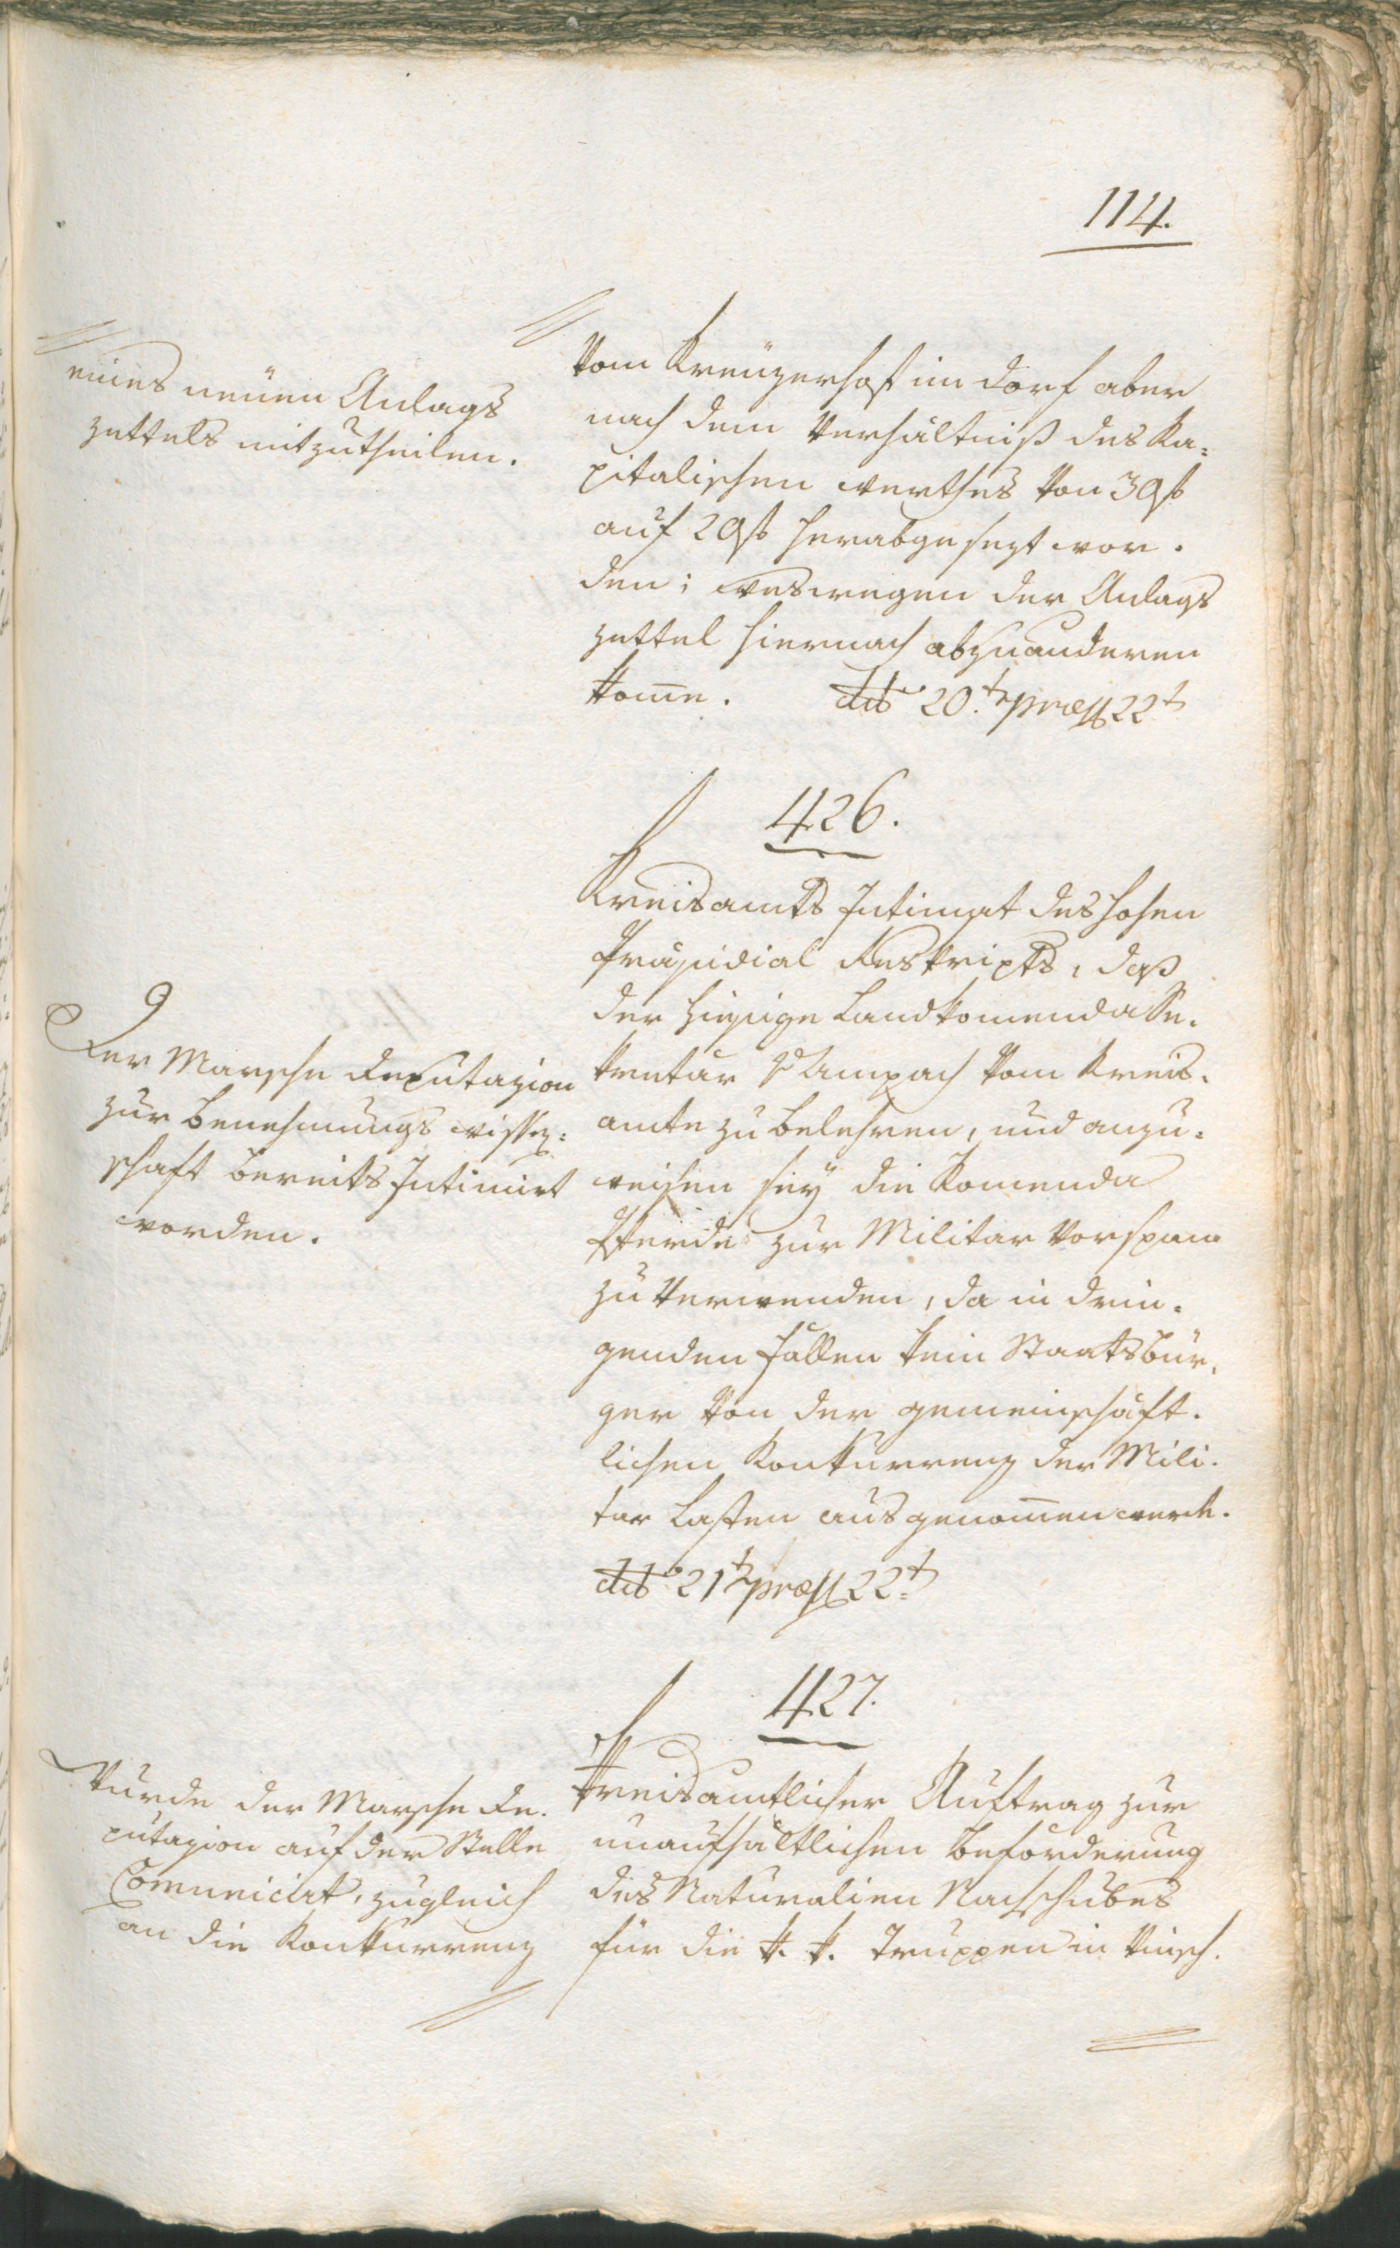 114.
eines neüen Anlags
zettels mitzutheilen.
vom Kreuzerhof im Dorf aber
nach dem Verhältniß des Ka=
pitalischen werthes von 39 f
auf 29 f herabgesezt wor.
den; weswegen der Anlags
zettel hiernach abzuänderen
komme. ddo 20.t præs 22t
426.
Kreisamts Intimat des hohen
Präsidial Reskripts, daß
der hiesige Landkomenda Se.
kretär v Ampach vom Kreis.
amte zu belehren, und anzu=
weisen seÿ die Komenda
Pferde zur Militar Vorspann
zu verwenden, da in drin.
genden Fällen kein Staatsbür.
ger von der gemeinschäft.
lichen Konkurrenz der Mili.
tar Lasten ausgenommen werde.
ddo 21t præs 22t
Der Marsche Deputazion
zur Benehmungs wissen=
schaft bereits Intimirt
worden.
427.
Kreisamtlicher Auftrag zur
unaufhältlichen Beförderung
des Naturalien Nachschubes
für die k. k. Truppen in Vinsch.
Wurde der Marsche De.
putazion auf der Stelle
Comunicirt, zugleich
an die Konkurrenz